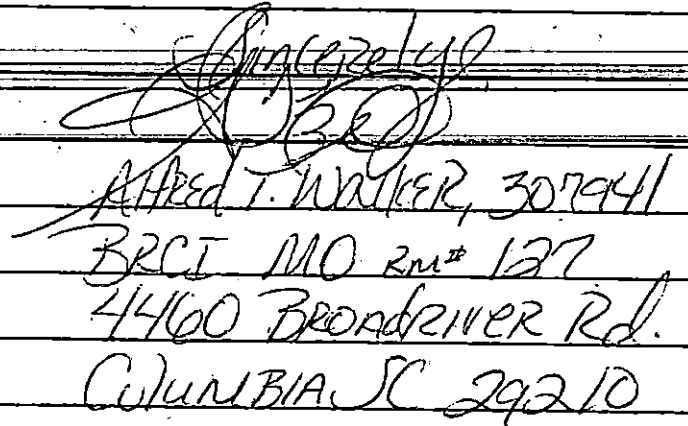 Sincerely,
Alfred T. Walker, 307941
BRCI MO RM# 127
4460 BROADRIVER Rd.
COlUMBIA SC 29210